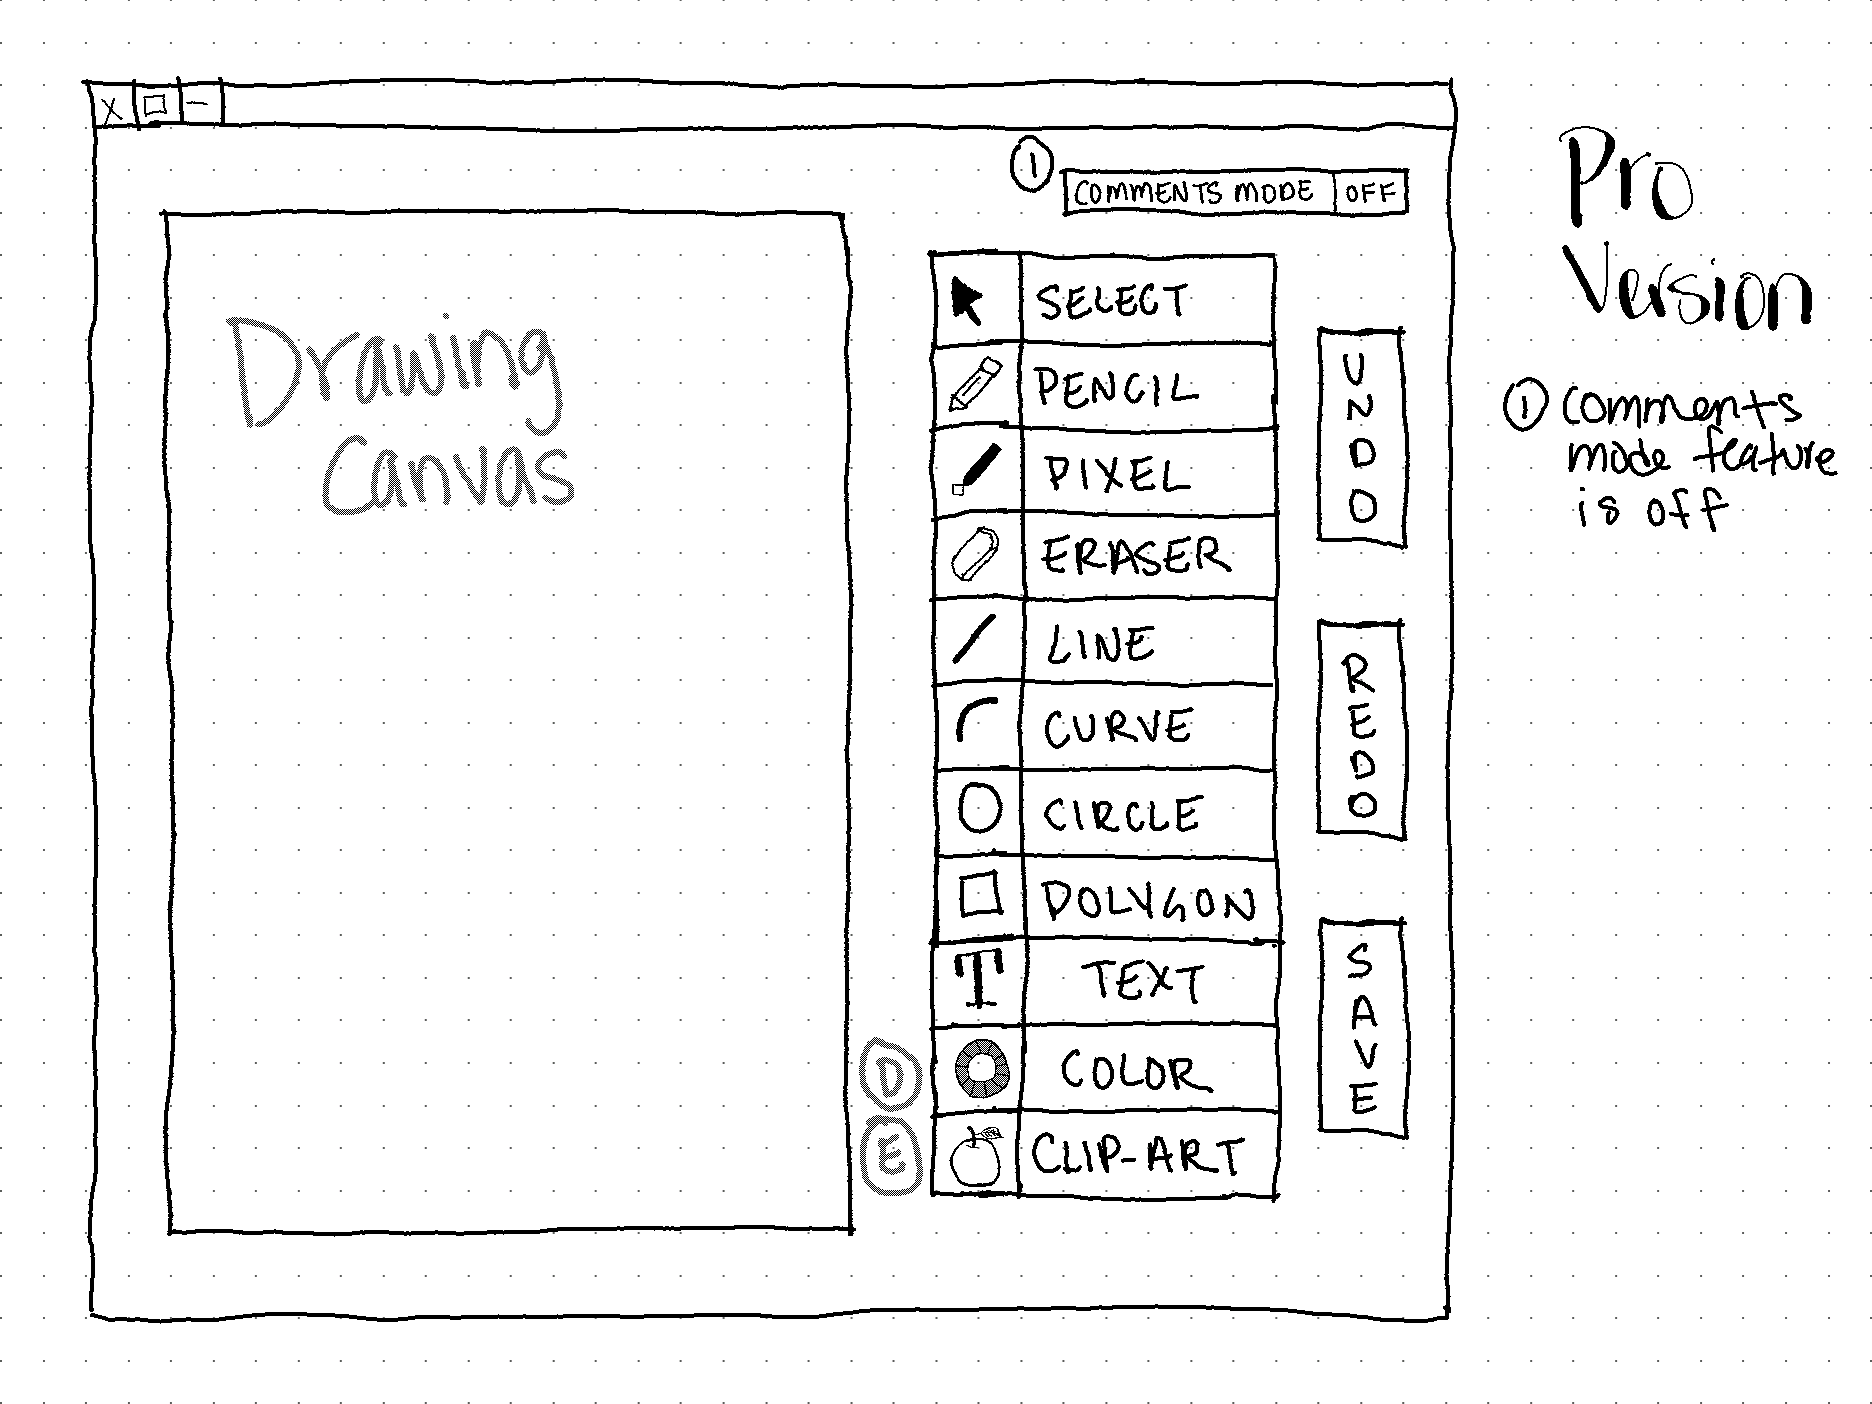 X
①
COMMENTS MODE OFF
Drawing
Canvas
SELECT
PENCIL
PIXEL
ERASER
LINE
CURVE
CIRCLE
POLYGON
T TEXT
D COLOR
E CLIP-ART
UNDO
REDO
SAVE
Pro
Version
① Comments
mode feature
is off